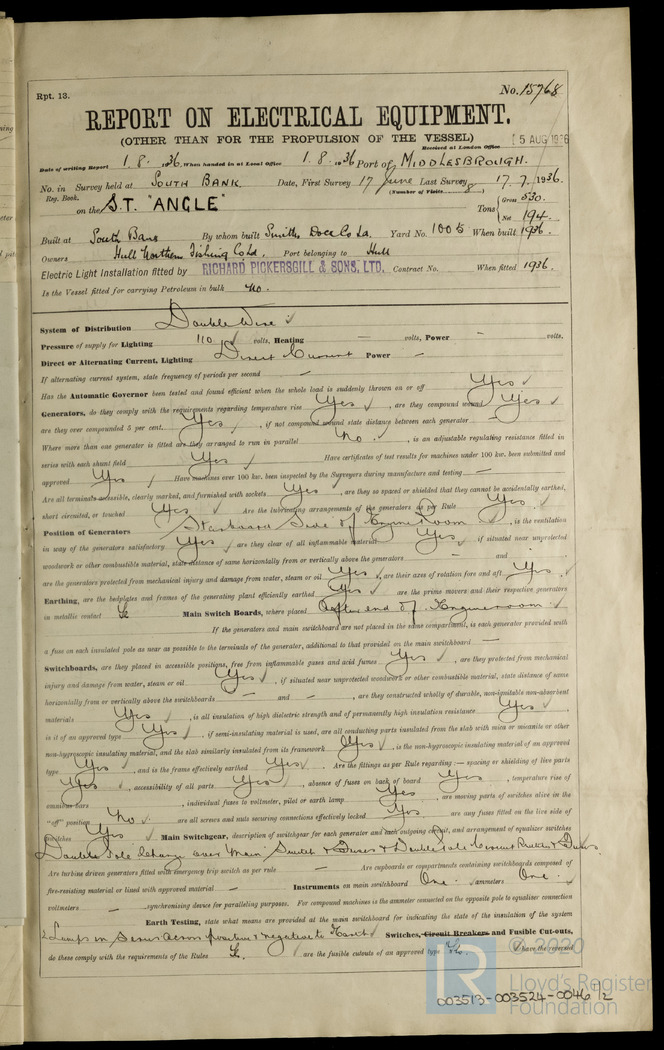 Rpt. 13.
No. 15768
REPORT ON ELECTRICAL EQUIPMENT.
(OTHER THAN FOR THE PROPULSION OF THE VESSEL)
Received at London Office 5 AUG 1936
Date of writing Report 1.8.1936. When handed in at Local Office 1.8.1936 Port of MIDDLESBROUGH.
No. in Survey held at SOUTH BANK Date, First Survey 17 June Last Survey 17.7.1936.
Reg. Book. (Number of Visits 8)
on the S.T. "ANGLE" Tons { Gross 530. Net 194.
Built at South Bank By whom built Smith's Dock Co Ld. Yard No. 1005 When built 1936.
Owners Hull Northern Fishing Co Ld. Port belonging to Hull
Electric Light Installation fitted by RICHARD PICKERSGILL & SONS, LTD. Contract No. When fitted 1936.
Is the Vessel fitted for carrying Petroleum in bulk No.
System of Distribution Double Wire ✓
Pressure of supply for Lighting 110 ✓ volts, Heating — volts, Power — volts.
Direct or Alternating Current, Lighting Direct Current Power —
If alternating current system, state frequency of periods per second —
Has the Automatic Governor been tested and found efficient when the whole load is suddenly thrown on or off Yes ✓
Generators, do they comply with the requirements regarding temperature rise Yes ✓, are they compound wound Yes ✓
are they over compounded 5 per cent. Yes ✓, if not compound wound state distance between each generator —
Where more than one generator is fitted are they arranged to run in parallel No. ✓, is an adjustable regulating resistance fitted in
series with each shunt field Yes ✓ Have certificates of test results for machines under 100 kw. been submitted and
approved Yes ✓ Have machines over 100 kw. been inspected by the Surveyors during manufacture and testing —
Are all terminals accessible, clearly marked, and furnished with sockets Yes ✓, are they so spaced or shielded that they cannot be accidentally earthed,
short circuited, or touched Yes ✓ Are the lubricating arrangements of the generators as per Rule Yes ✓
Position of Generators Starboard Side of Engine Room ✓, is the ventilation
in way of the generators satisfactory Yes ✓ are they clear of all inflammable material Yes ✓ if situated near unprotected
woodwork or other combustible material, state distance of same horizontally from or vertically above the generators — and —,
are the generators protected from mechanical injury and damage from water, steam or oil Yes ✓, are their axes of rotation fore and aft Yes ✓
Earthing, are the bedplates and frames of the generating plant efficiently earthed Yes ✓ are the prime movers and their respective generators
in metallic contact Yes Main Switch Boards, where placed After end of Engine room ✓
If the generators and main switchboard are not placed in the same compartment, is each generator provided with
a fuse on each insulated pole as near as possible to the terminals of the generator, additional to that provided on the main switchboard —
Switchboards, are they placed in accessible positions, free from inflammable gases and acid fumes Yes ✓, are they protected from mechanical
injury and damage from water, steam or oil Yes ✓, if situated near unprotected woodwork or other combustible material, state distance of same
horizontally from or vertically above the switchboards — and —, are they constructed wholly of durable, non-ignitable non-absorbent
materials Yes ✓, is all insulation of high dielectric strength and of permanently high insulation resistance Yes ✓,
is it of an approved type Yes ✓, if semi-insulating material is used, are all conducting parts insulated from the slab with mica or micanite or other
non-hygroscopic insulating material, and the slab similarly insulated from its framework Yes ✓, is the non-hygroscopic insulating material of an approved
type Yes ✓, and is the frame effectively earthed Yes. Are the fittings as per Rule regarding:— spacing or shielding of live parts
Yes ✓, accessibility of all parts Yes ✓, absence of fuses on back of board Yes ✓, temperature rise of
omnibus bars —, individual fuses to voltmeter, pilot or earth lamp Yes ✓, are moving parts of switches alive in the
"off" position No. ✓ are all screws and nuts securing connections effectively locked Yes ✓ are any fuses fitted on the live side of
switches Yes ✓ Main Switchgear, description of switchgear for each generator and each outgoing circuit, and arrangement of equaliser switches
Double Pole Change over Main Switch & Fuses & Double Pole
Are turbine driven generators fitted with emergency trip switch as per rule — Are cupboards or compartments containing switchboards composed of
fire-resisting material or lined with approved material — Instruments on main switchboard One. ✓ ammeters One. ✓
voltmeters — synchronising device for paralleling purposes. For compound machines is the ammeter connected on the opposite pole to equaliser connection
Earth Testing, state what means are provided at the main switchboard for indicating the state of the insulation of the system
2 Lamps in Series across positive & negative to Earth ✓ Switches, Circuit Breakers and Fusible Cut-outs,
do these comply with the requirements of the Rules Yes. are the fusible cutouts of an approved type Yes. ✓ have the reversed
© 2020
LR Lloyd's Register
Foundation
003513-003524-0046 1/2